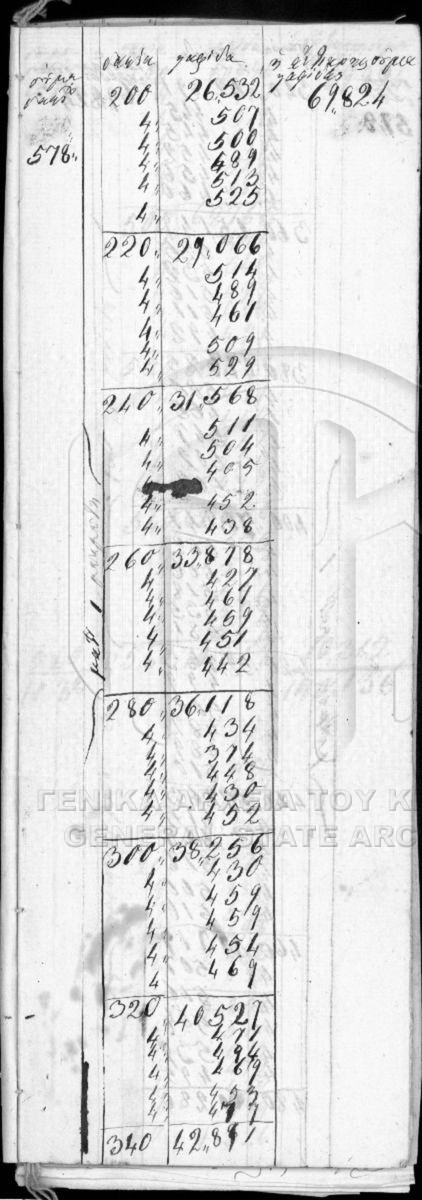 σούμα σακιά σταφίδα σούμα
200 26,532 69,824
4,, 507
4,, 500
578,, 4,, 489
4,, 513
4,, 525
4,,
220,, 29,066
4,, 514
4,, 489
4,, 461
4,,
4,, 509
4,, 529
240,, 31,568
4,, 511
4,, 504
4,, 405
4,, 452
4,, 438
260,, 33,878
4,, 427
4,, 461
4,, 459
4,, 451
4,, 442
280,, 36,118
4,, 434
4,, 374
4,, 448
4,, 430
4,, 452
300,, 38,256
4,, 430
4,, 459
4,, 459
4,, 454
4 469
320 40527
4,, 471
4,, 494
4,, 469
4,, 453
4,, 477
340 42,891
ΓΕΝΙΚΑ ΑΡΧΕΙΑ ΤΟΥ Κ
GENERAL STATE ARC